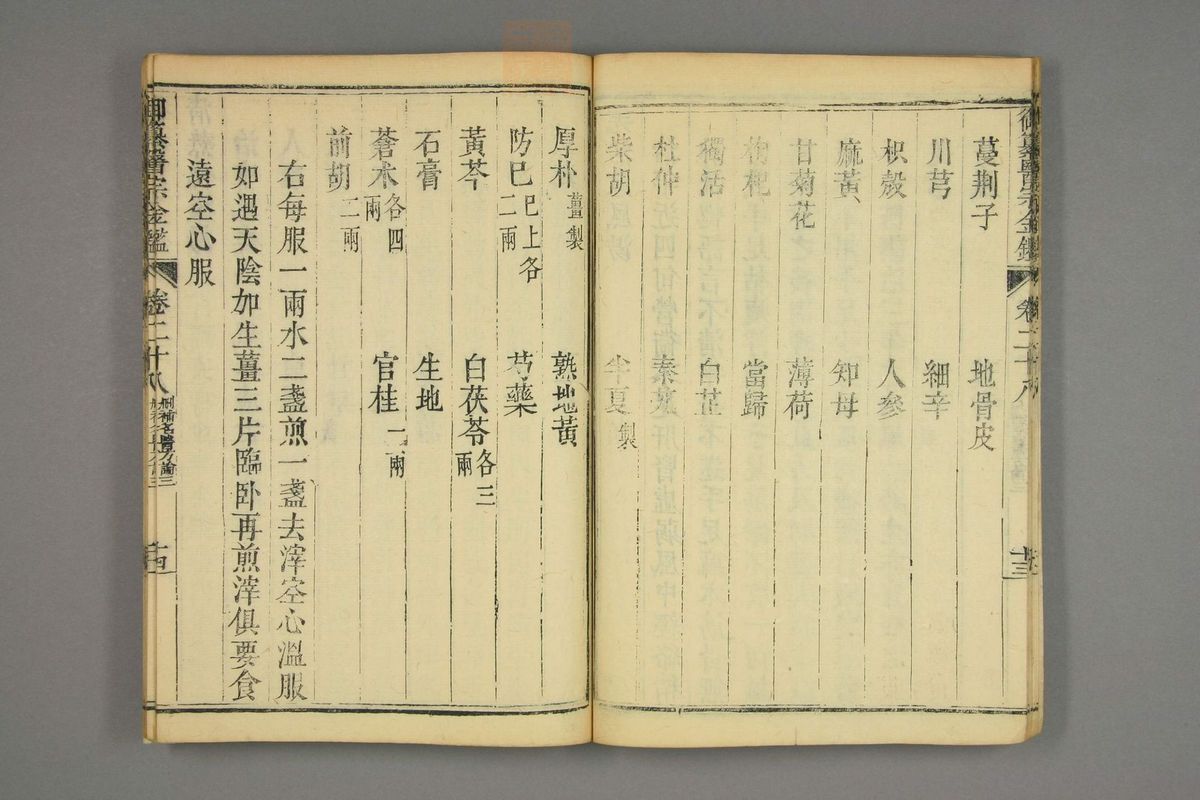 御纂醫宗金鑑 卷二十八 十三
蔓荆子 地骨皮
川芎 細辛
枳殼 人參
麻黃 知母
甘菊花 薄荷
枸杞 當歸
獨活 白芷
杜仲 秦艽
柴胡 半夏製
厚朴薑製 熟地黃
防巳巳上各二兩 芍藥
黃芩 白茯苓各三兩
石膏 生地
蒼朮各四兩 官桂一兩
前胡二兩
右每服一兩水二盞煎一盞去滓空心溫服
如遇天陰加生薑三片臨卧再煎滓俱要食
遠空心服
御纂醫宗金鑑 卷二十八 刪補名醫方論三 十四